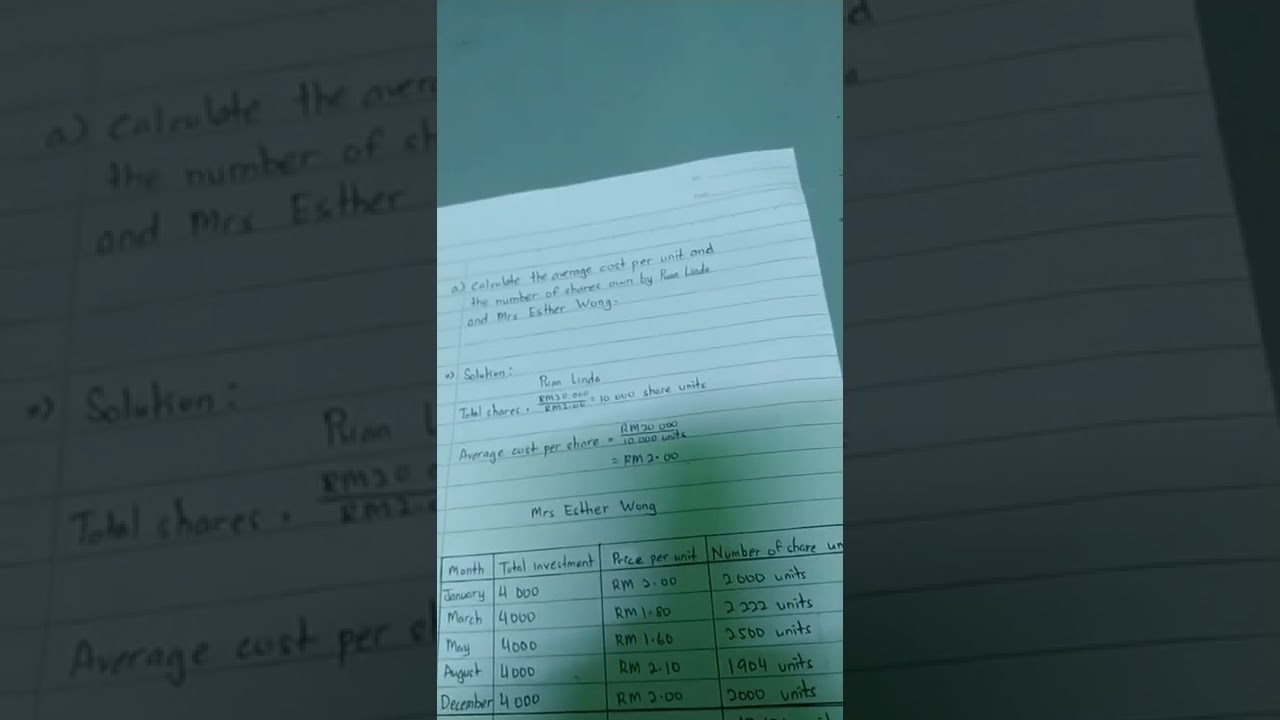 a) Calculate the average cost per unit and
the number of shares own by Puan Linda
and Mrs Esther Wong.
a) Solution:
Puan Linda
Total shares = RM20 000 / RM2.00 = 10 000 share units
Average cost per share = RM20 000 / 10 000 units
= RM2.00
Mrs Esther Wong
Month Total investment Price per unit Number of share un
January 4 000 RM 2.00 2000 units
March 4000 RM 1.80 2222 units
May 4000 RM 1.60 2500 units
August 4000 RM 2.10 1904 units
December 4000 RM 2.00 2000 units